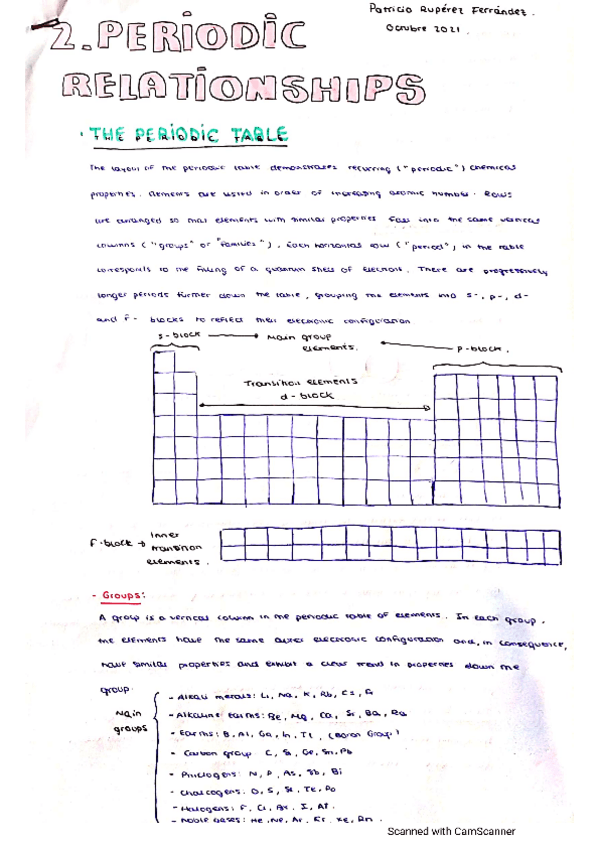 Patricia Rupérez Fernández.
Octubre 2021.
2. PERIODIC
RELATIONSHIPS
· THE PERIODIC TABLE
The layout of the periodic table demonstrates recurring ("periodic") chemical
properties. Elements are listed in order of increasing atomic number. Rows
are arranged so that elements with similar properties fall into the same vertical
columns ("groups" or "families"). Each horizontal row ("period") in the table
corresponds to the filling of a quantum shell of electrons. There are progressively
longer periods further down the table, grouping the elements into s-, p-, d-
and f- blocks to reflect their electronic configuration
s-block
Main group
elements.
p-block.
Transition elements
d-block
f-block → Inner
transition
elements.
- Groups:
A group is a vertical column in the periodic table of elements. In each group,
the elements have the same outer electronic configuration and, in consequence,
have similar properties and exhibit a clear trend in properties down the
group.
Main
groups
- Alkali metals: Li, Na, K, Rb, Cs, Fr
- Alkaline earths: Be, Mg, Ca, Sr, Ba, Ra
- Earths: B, Al, Ga, In, Tl, (Boron Group)
- Carbon group C, Si, Ge, Sn, Pb
- Pnictogens: N, P, As, Sb, Bi
- Chalcogens: O, S, Se, Te, Po
- Halogens: F, Cl, Br, I, At.
- Noble gases: He, Ne, Ar, Kr, Xe, Rn.
Scanned with CamScanner